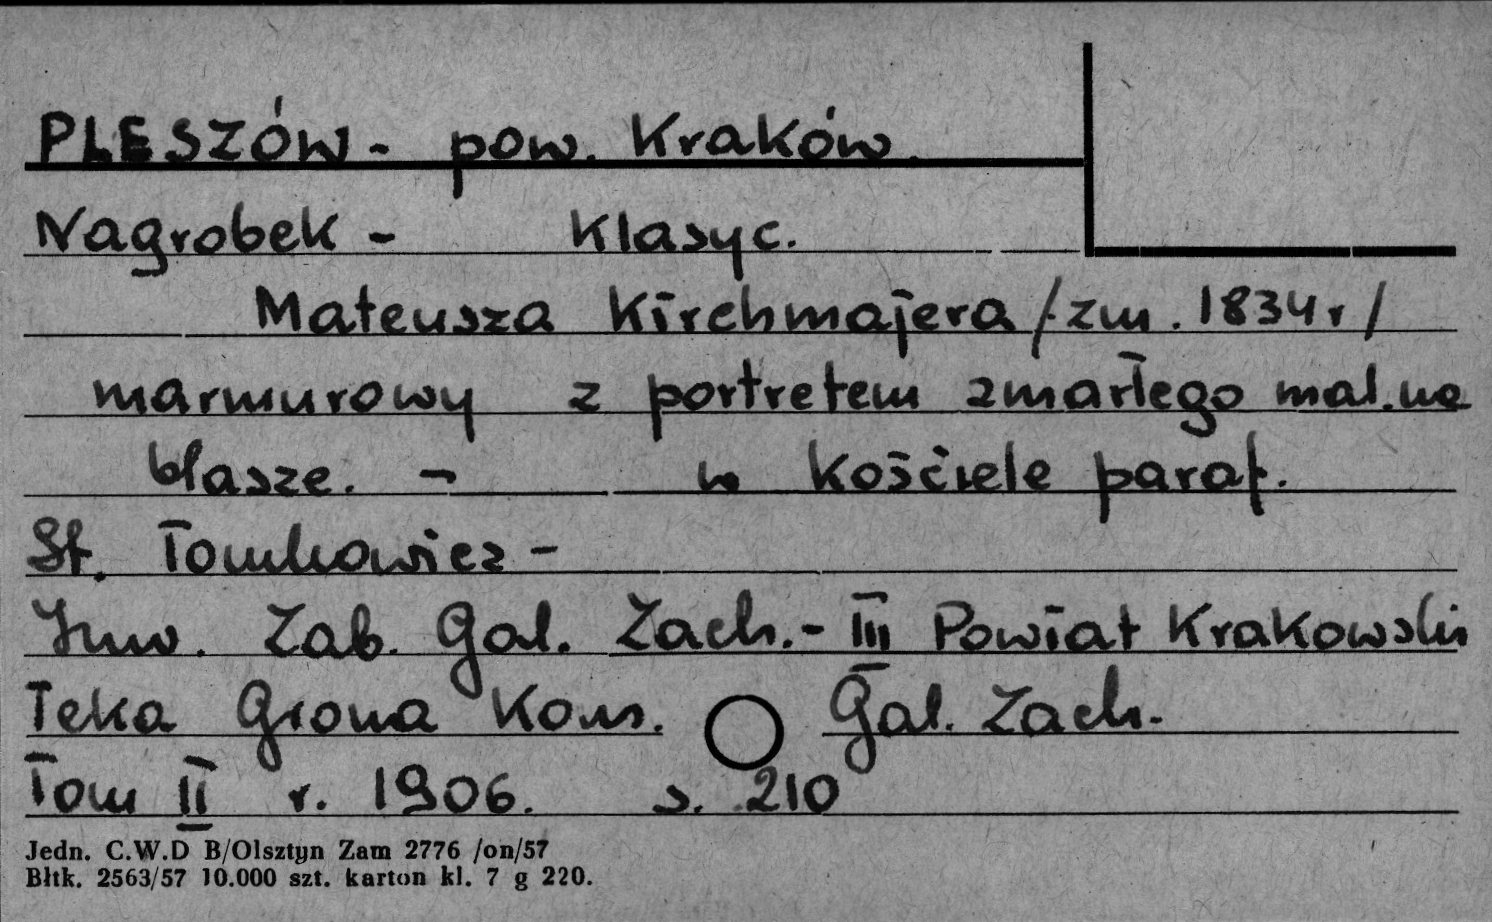 PLESZÓW - pow. Kraków.
Nagrobek - Klasyc.
Mateusza Kirchmajera /zm. 1834 r/
marmurowy z portretem zmarłego mal. na
blasze. - w kościele paraf.
St. Tomkowicz -
Inw. Zab. Gal. Zach. - III Powiat Krakowski
Teka Grona Kons. Gal. Zach.
Tom II r. 1906. s. 210
Jedn. C.W.D B/Olsztyn Zam 2776 /on/57
Błtk. 2563/57 10.000 szt. karton kl. 7 g 220.